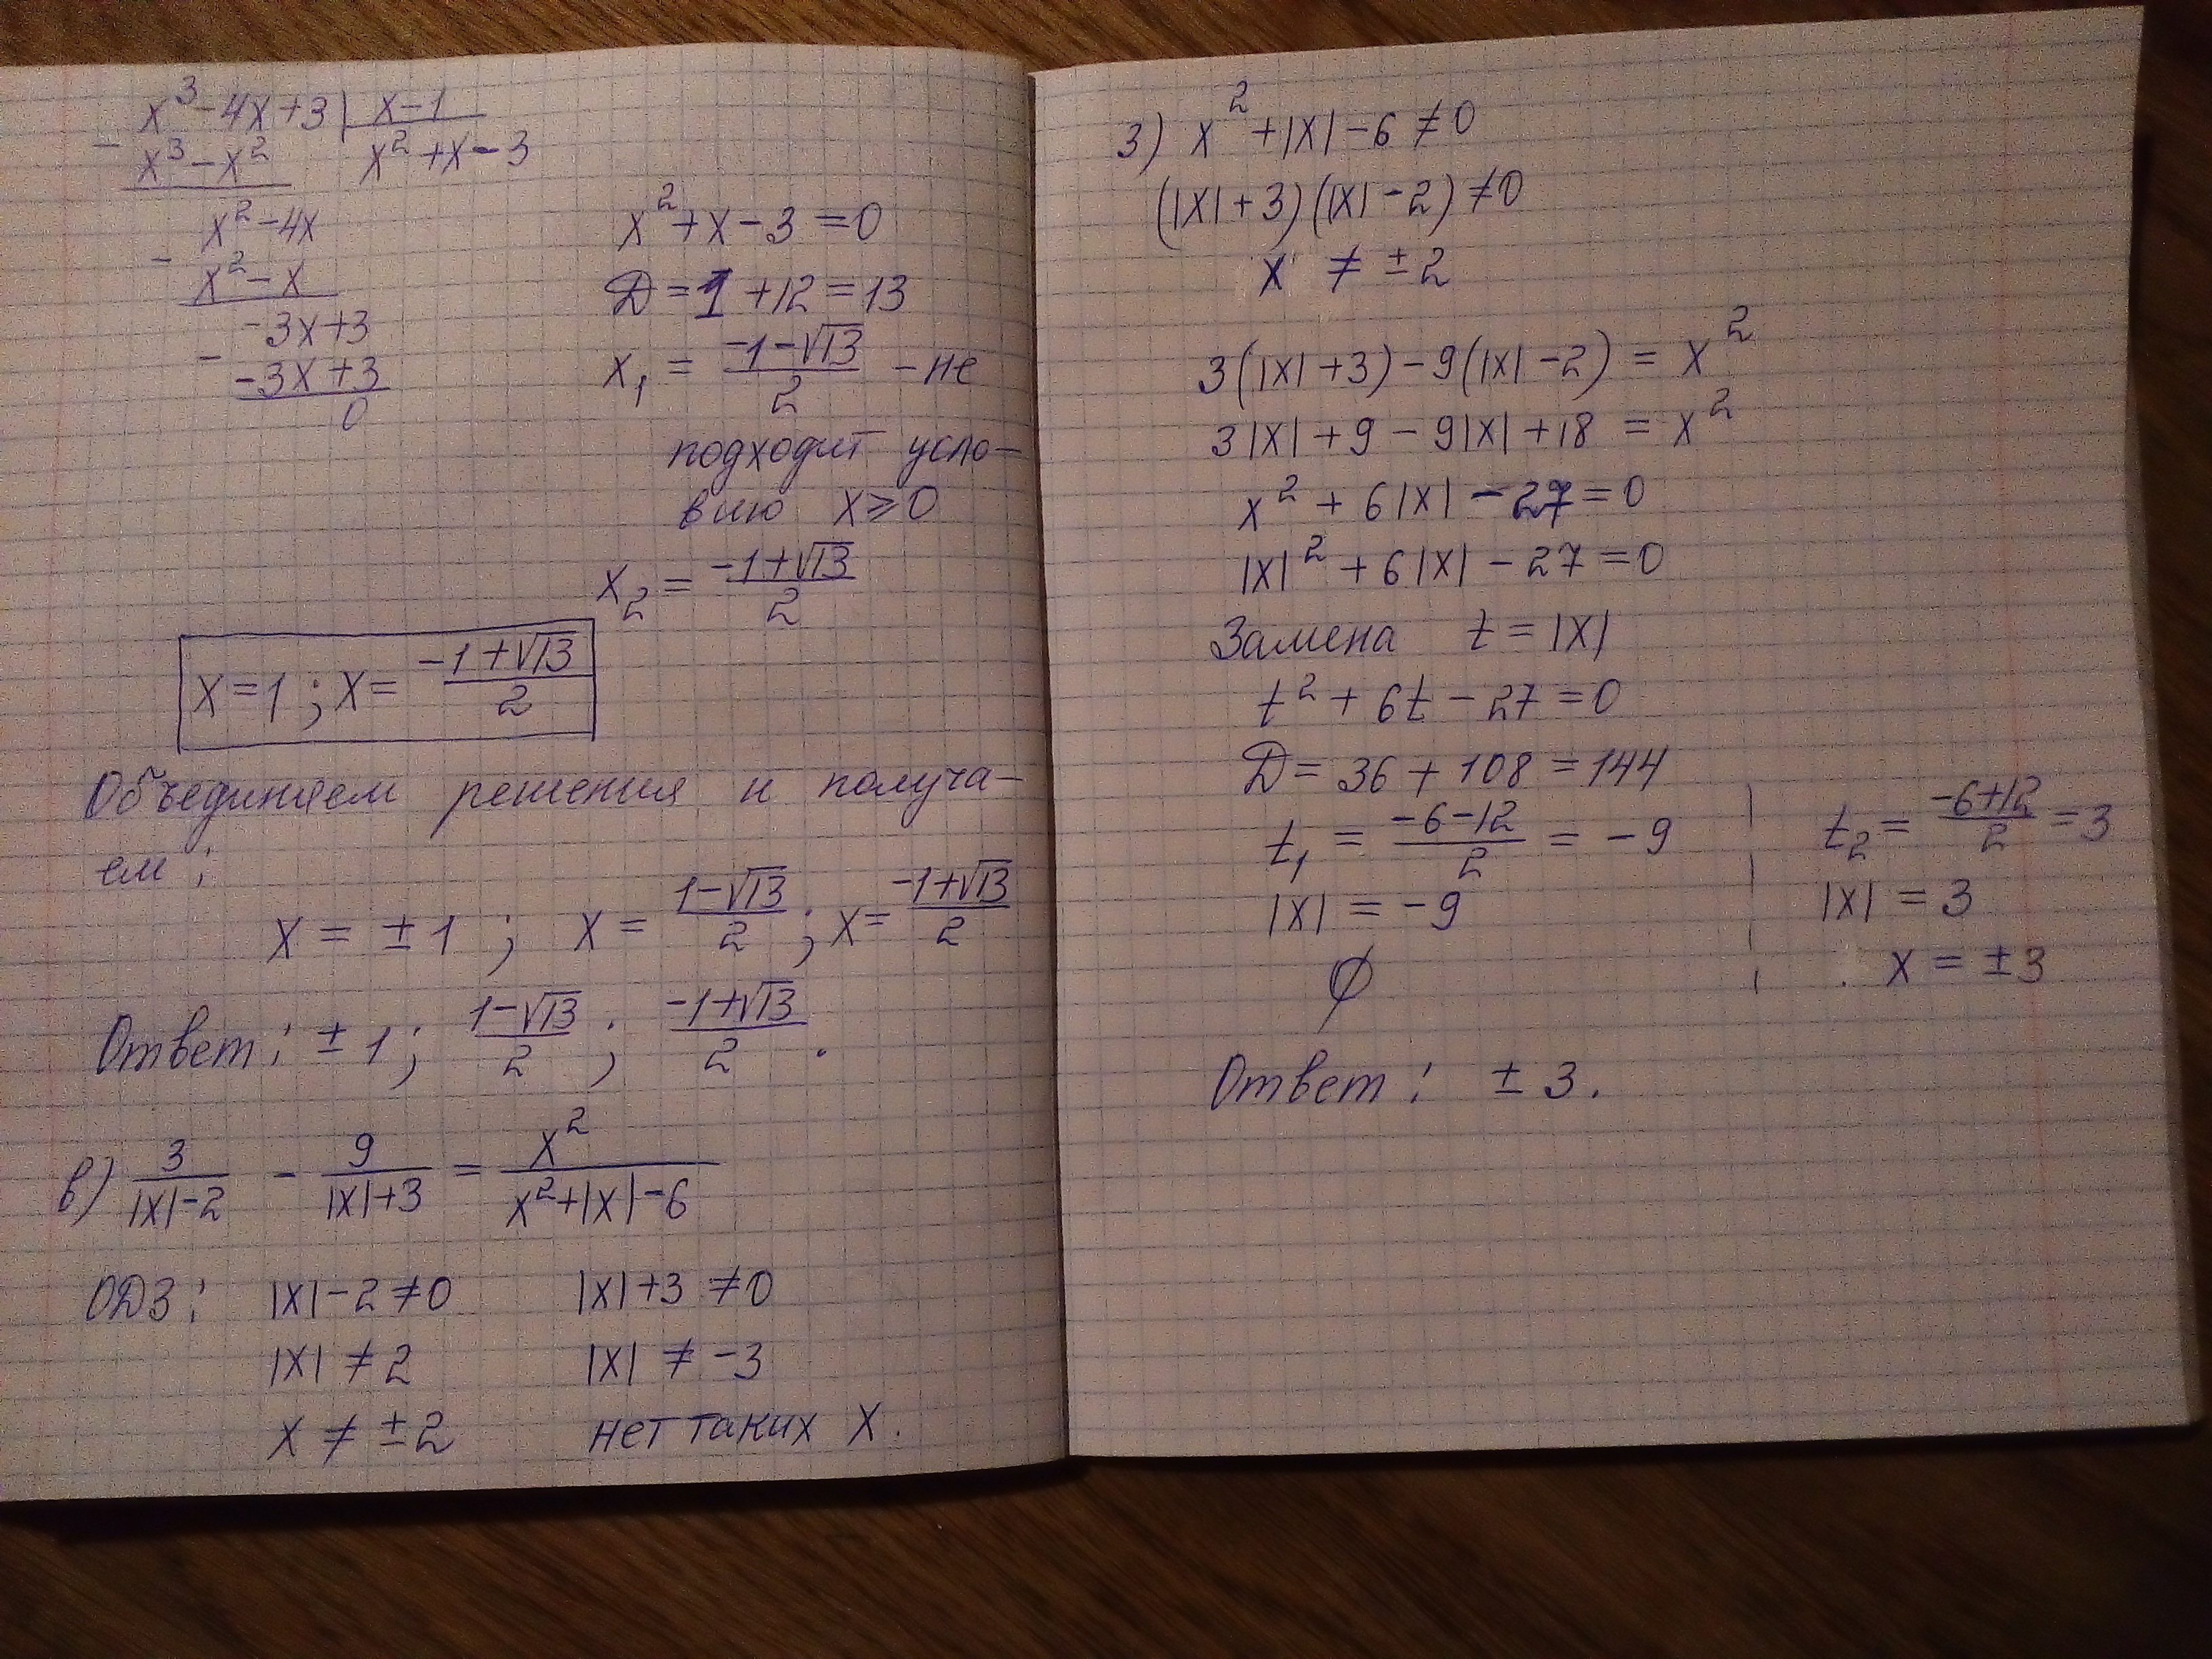 x³-4x+3 | x-1
- x³-x² x²+x-3
x²-4x
- x²-x
-3x+3
- -3x+3
0
x²+x-3=0
Д=1+12=13
x₁ = (-1-√13)/2 - не
подходит усло-
вию x≥0
x₂ = (-1+√13)/2
x=1; x= (-1+√13)/2
Объединяем решения и получа-
ем:
x = ±1; x = (1-√13)/2; x= (-1+√13)/2
Ответ: ±1; (1-√13)/2; (-1+√13)/2.
в) 3/(|x|-2) - 9/(|x|+3) = x²/(x²+|x|-6)
ОДЗ: |x|-2≠0 |x|+3≠0
|x|≠2 |x| ≠ -3
x ≠ ±2 нет таких x.
3) x²+|x|-6≠0
(|x|+3)(|x|-2)≠0
x ≠ ±2
3(|x|+3)-9(|x|-2) = x²
3|x|+9-9|x|+18 = x²
x²+6|x|-27=0
|x|²+6|x|-27=0
Замена t=|x|
t²+6t-27=0
Д=36+108=144
t₁ = (-6-12)/2 = -9
|x| = -9
∅
t₂ = (-6+12)/2 = 3
|x| = 3
x = ±3
Ответ: ±3.